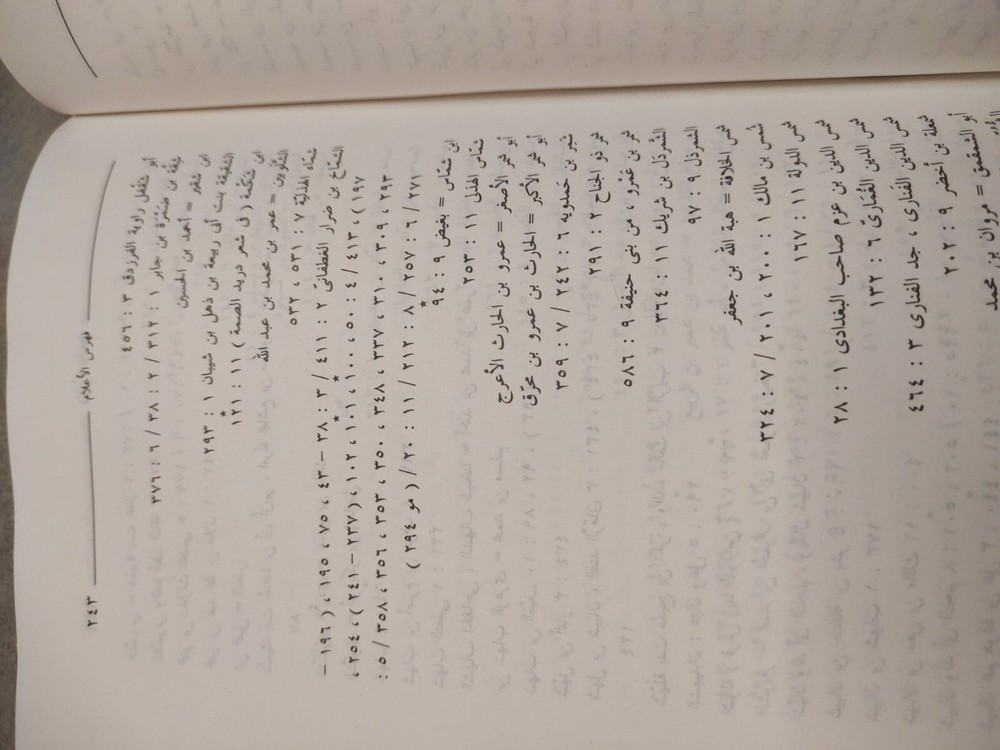 فهرس الأعلام
٢٤٣
أبو شفقل راوية الفرزدق ٣ : ٤٥٦
شِقّة بن ضَمْرَة بن جابر ١ : ٣١٢ / ٢ : ٣٨ / ٩ : ٣٧٦
ابن شقير = أحمد بن الحسين
الشقيقة بنت أبى ربيعة بن ذهل بن شيبان ١ : ٢٩٣
ابن شكْمة ( فى شعر دريد الصمة ) ١١ : ١٢١
الشلَّوبين = عمر بن محمد بن عبد الله
شمّاء الهذليّة ٧ : ٥٣١ ، ٥٣٢
الشمّاخ بن ضرار الغطفانىّ ٢ : ٤١١ / ٣ : ٣٨ – ٤٣ ، ٧٥ ، ١٩٥ ، ( ١٩٦ –
١٩٧ ) ، ٤١٣ / ٤ : ٥٠ ، ١٠٠ ، ١٠١ ، ١٠٢ ، ( ٢٣٧ – ٢٤١ ) ، ٢٥٤ ،
٢٩٣ ، ٣٠٩ ، ٣١٠ ، ٣٣٧ ، ٣٤٨ ، ٣٥٠ ، ٣٥٣ ، ٣٥٦ ، ٣٥٨ / ٥ :
٢٧١ / ٦ : ٢٥٧ / ٨ : ٢١٢ / ١١ : ٢٠ / ( مو ٢٩٤ )
ابن شمّاس = بغيض ٩ : ٩٤
شماس الهذلى ١١ : ٢٥٣
أبو شمر الأصغر = عمرو بن الحارث الأعرج
أبو شمر الأكبر = الحارث بن عمرو بن محرّق
شمر بن حَمدويه ٦ : ٢٤٢ / ٧ : ٣٥٩
شمر ذو الجناح ٢ : ٢٩١
شمر بن عَمرو ، من بنى حنيفة ٩ : ٥٨٦
الشَّمردَل بن شريك ١١ : ٣٦٤
الشمرذل ٩ : ٩٧
شمس الخلافة = هبة الله بن جعفر
شمس بن مالك ١ : ٢٠٠ ، ٢٠١ / ٧ : ٣٢٤
شمس الدولة ١١ : ١٦٧
شمس الدين بن عزم صاحب البغدادى ١ : ٢٨
شمس الدين الغُمَارىّ ٦ : ١٣٢
شمس الدين الفَنارى ، جد الفنارى ٣ : ٤٦٤
شمعلة بن أخضر ٩ : ٢٠٢
أبو الشمقمق = مروان بن محمد